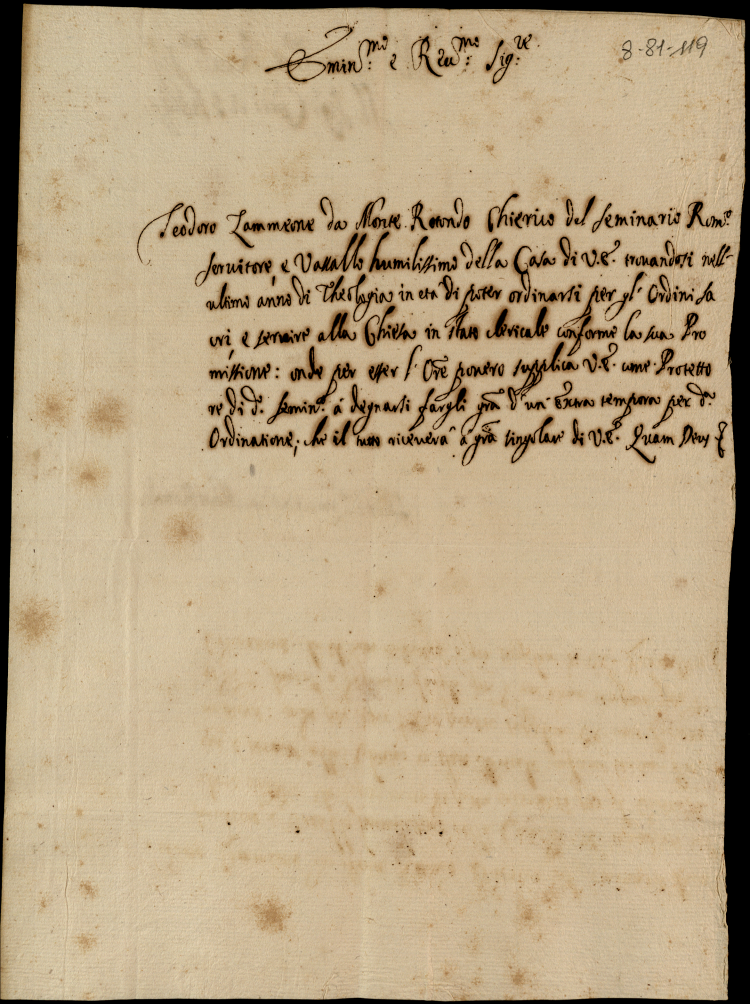 8-81-119
Emin:mo e Reu:mo Sig:re
Teodoro Zammeone da Monte Rotondo Chierico del Seminario Rom:o
seruitore, e Vassallo humilissimo della Casa di V.E. trouandosi nell'
ultimo anno di Theologia in età di poter ordinarsi per gl' Ordini Sa
cri, e seruire alla Chiesa in stato clericale conforme la sua Pro
missione: onde per esser l' Ore pouero supplica V.E. come Protetto
re di d.o Semin.o à degnarsi fargli gra d' un' extra tempora per d.a
Ordinatione; che il tutto riceuerà à gra singolare di V.E. Quam Deus